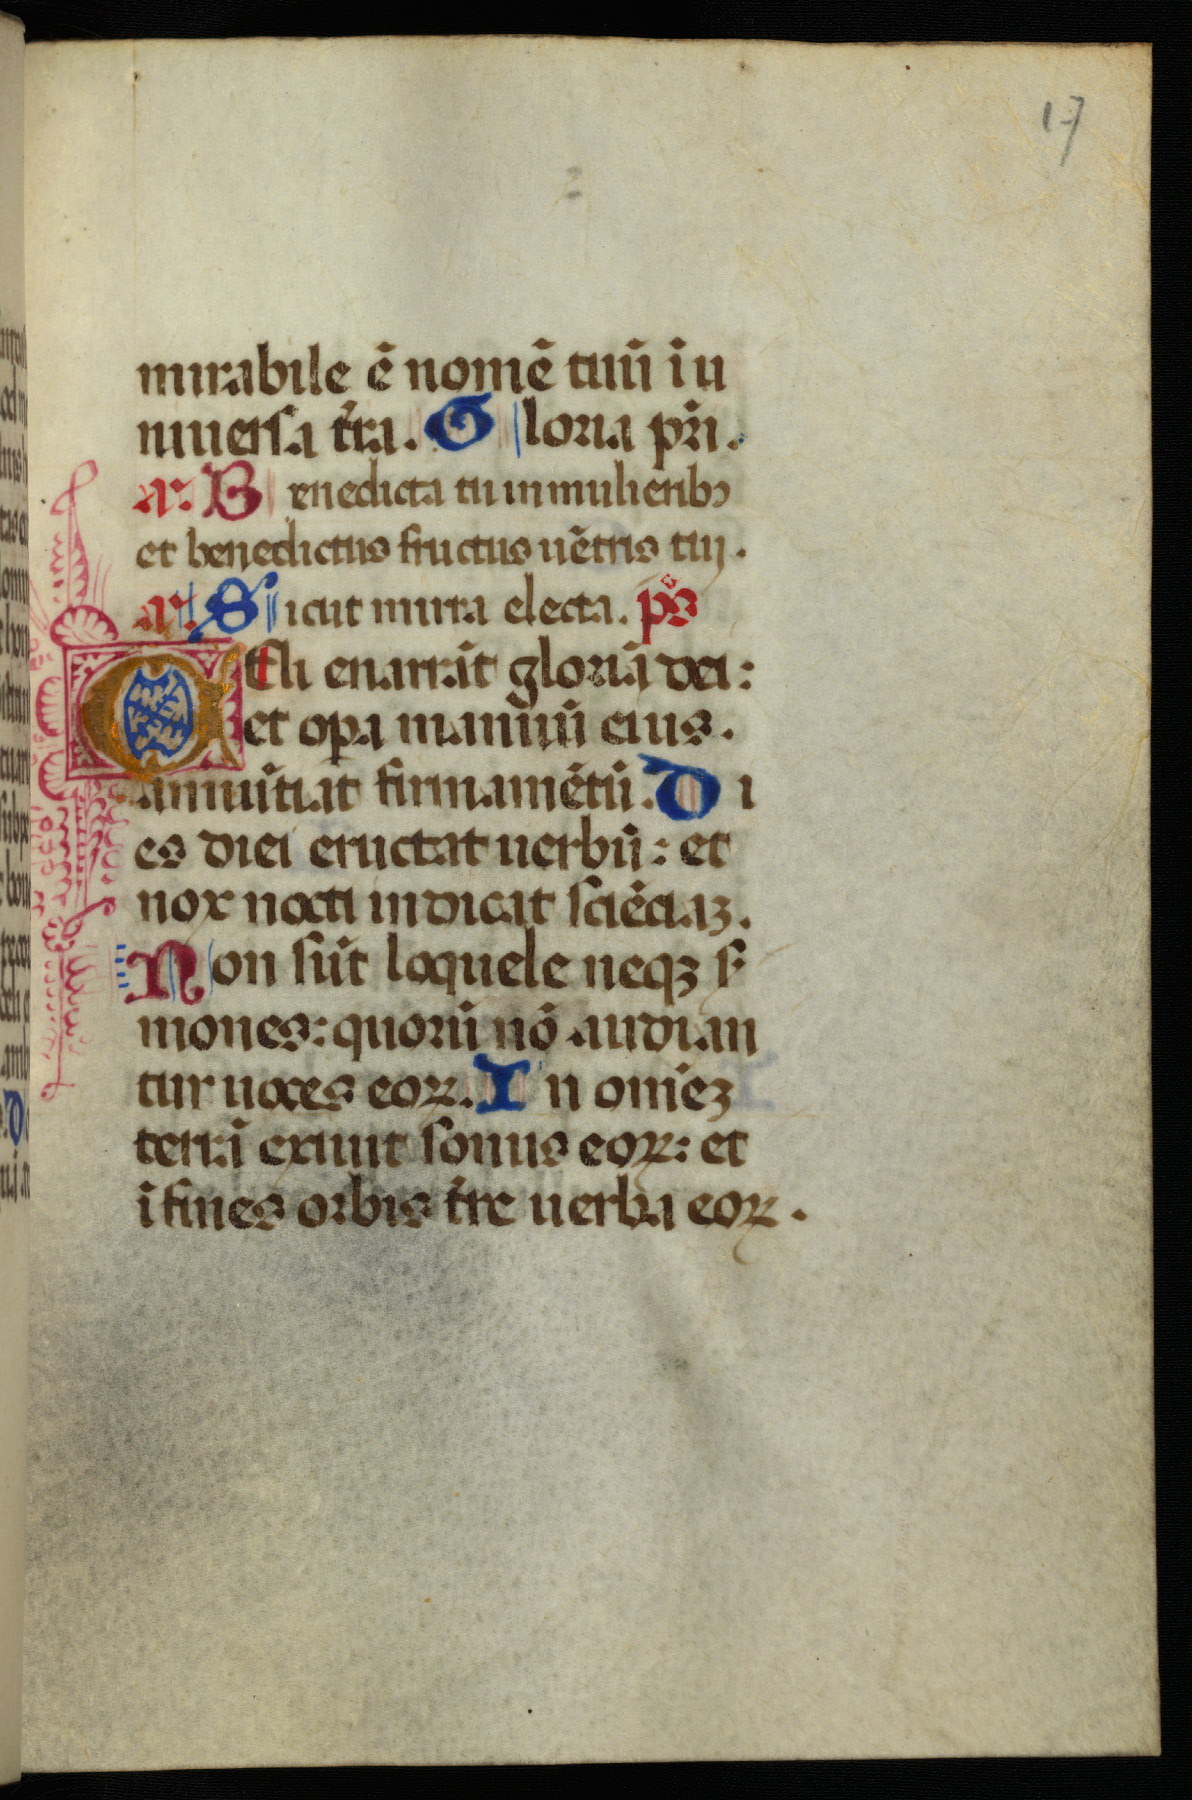 17
mirabile ē nomē tuū ī u
niuersa t̄ra. Gloria pr̄i.
a͛. Benedicta tu in mulieribꝯ
et benedictus fructus uētris tui.
a͛. Sicut mirra electa. ps̄
CEli enarrāt gloriā dei:
et opa manuū eius.
annūtiat firmamētū. Di
es diei eructat uerbū: et
nox nocti indicat sciēciaꝫ.
Non sūt loquele neqꝫ s̄
mones: quorū nō audian
tur uoces eoꝝ. In om̄eꝫ
terrā exiuit sonus eoꝝ: et
ī fines orbis t̄re uerba eoꝝ.